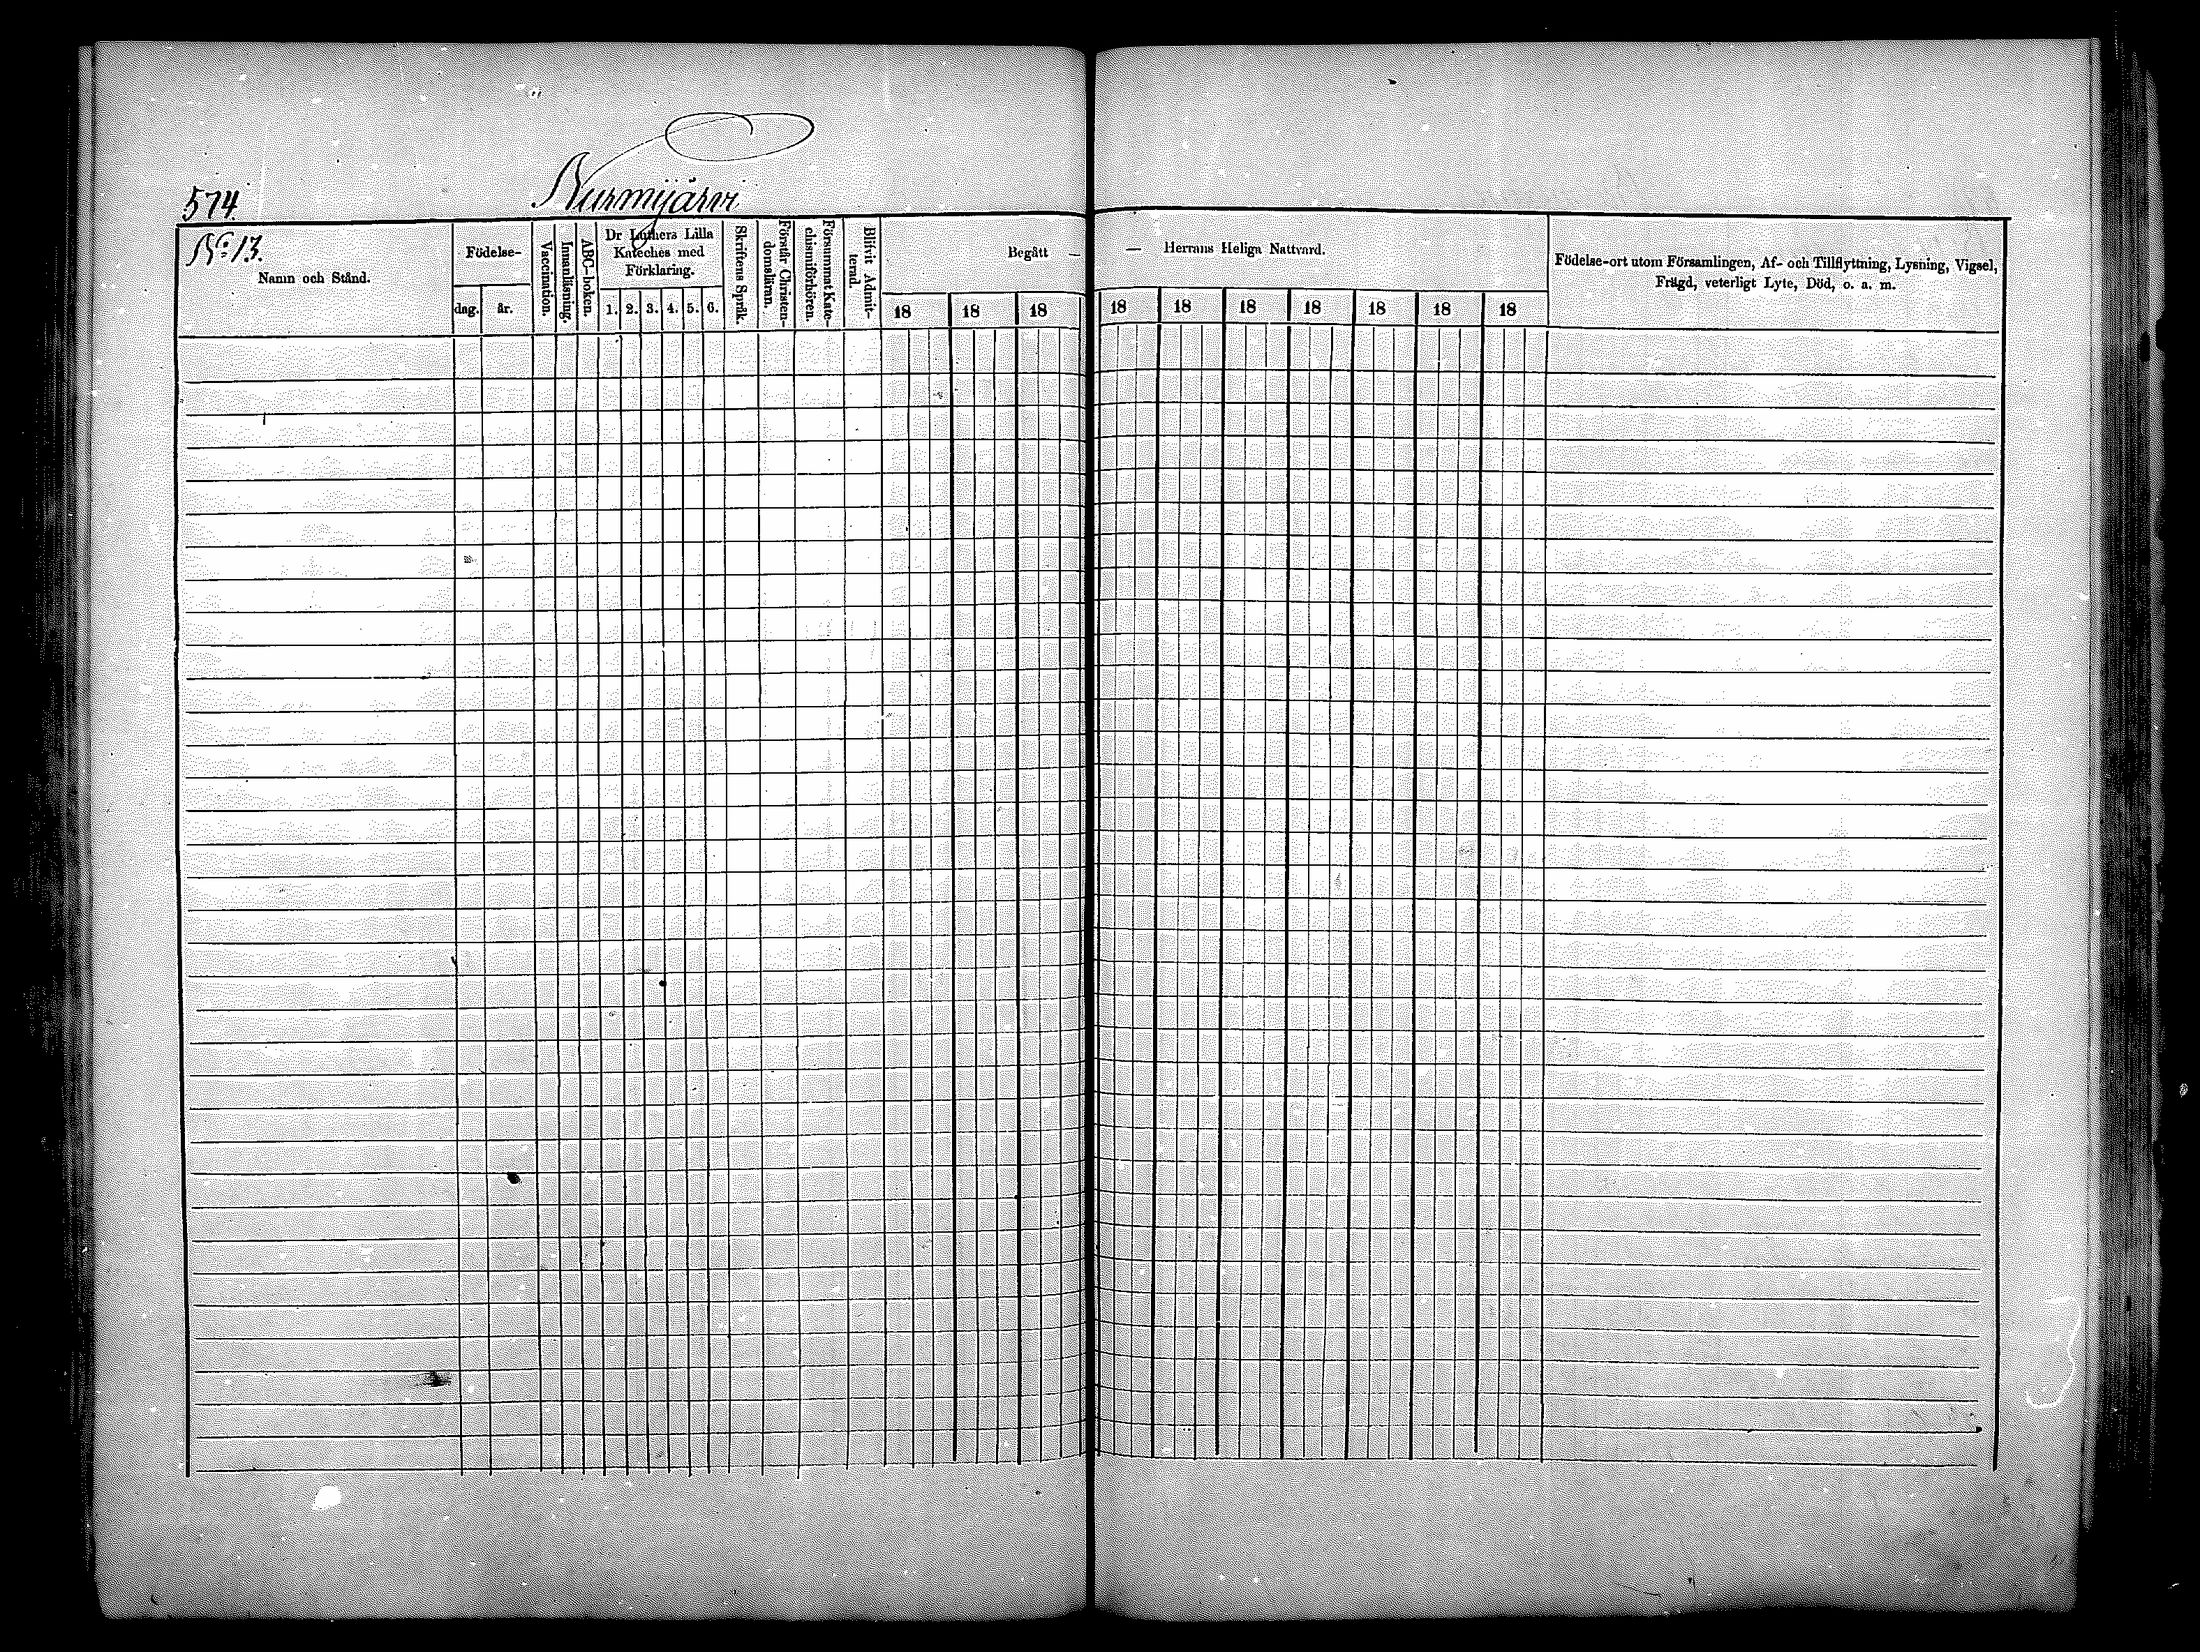 574.
Nurmijärvi
No 13.
Namn och Stånd.
Födelse-
dag.
år.
Vaccination.
Innanläsning.
ABC-boken.
Dr Luthers Lilla
Kateches med
Förklaring.
1. 2. 3. 4. 5. 6.
Skriftens Språk.
Förstår Christen-
domsläran.
Försummat Kate-
chismiförhören.
Blifvit Admit-
terad.
Begått —
18 18 18
— Herrans Heliga Nattvard.
18 18 18 18 18 18 18
Födelse-ort utom Församlingen, Af- och Tillflyttning, Lysning, Vigsel,
Frägd, veterligt Lyte, Död, o. a. m.